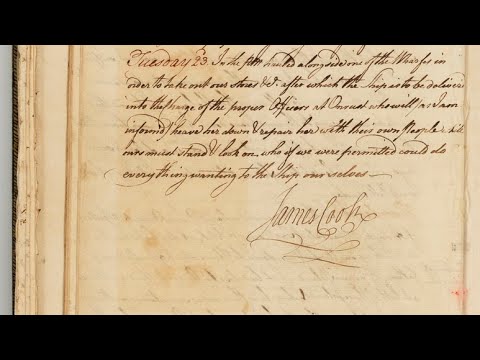 Tuesday 23. In the PM hauled alongside one of the Wharfes in
order to take out our stores &c. after which the Ship is to be deliver'd
into the charge of the proper Officers at Onrust who will (as I am
inform'd) heave her down & repair her with their own People
ours must stand & look on, who if we were permitted could do
every thing wanting to the Ship our selves
James Cook